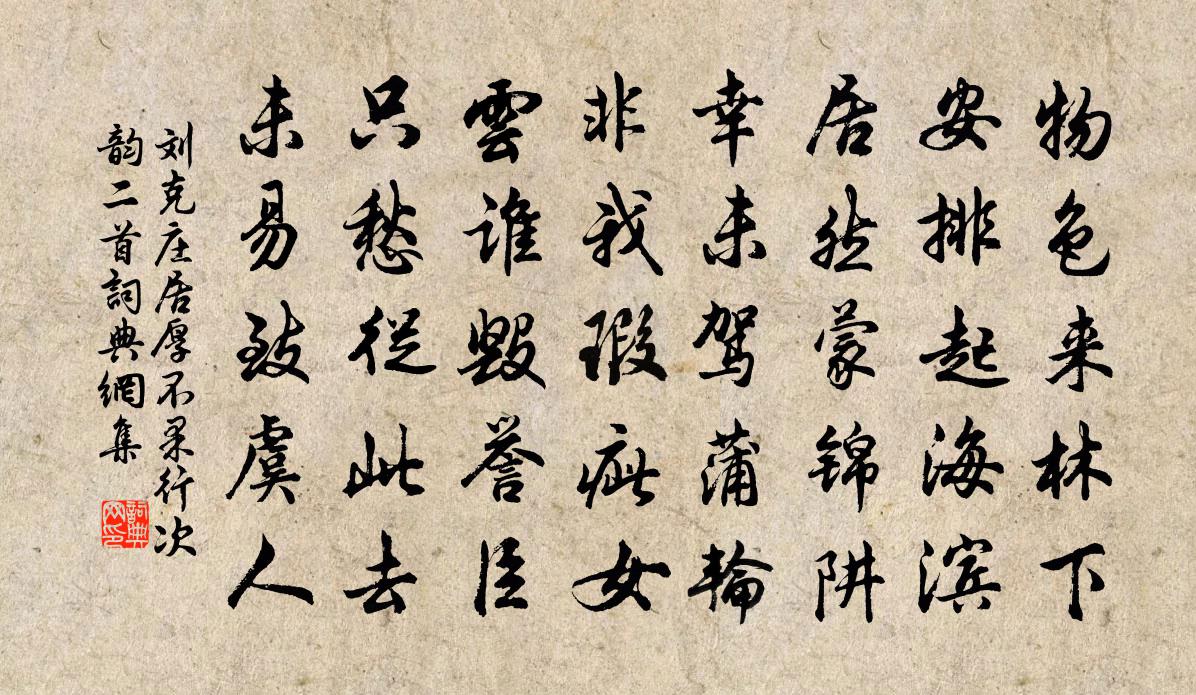 物色来林下
安排起海滨
居然蒙锦阱
幸未驾蒲轮
非我瑕疵女
雲谁毁誉臣
只愁従此去
未易致虞人
刘克庄居厚不果行次
韵二首詞典網集
詞典网印